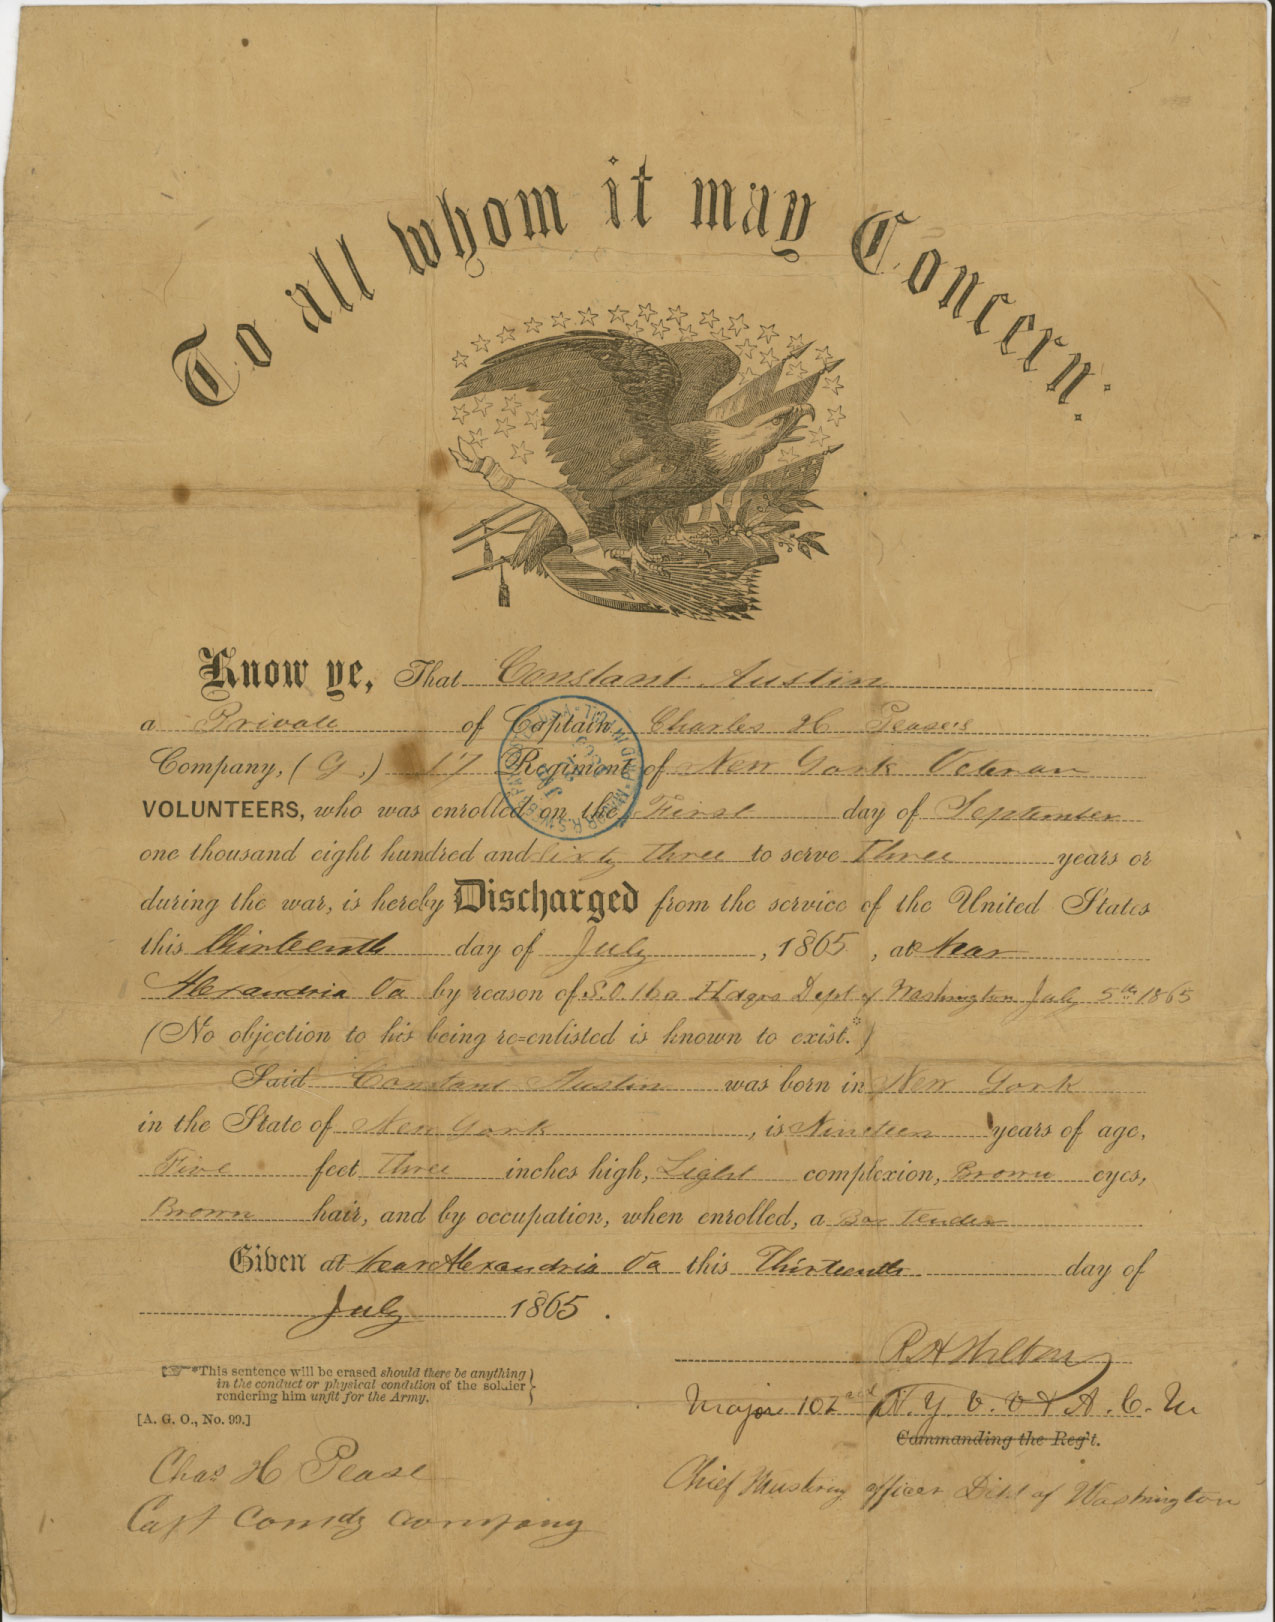 To all whom it may Concern:
Know ye, That Constant Austin
a Private of Captain Charles H Pease's
Company, (G,) 17 Regiment of New York Veteran
VOLUNTEERS, who was enrolled on the First day of September
one thousand eight hundred and Sixty Three to serve Three years or
during the war, is hereby Discharged from the service of the United States
this thirteenth day of July, 1865, at Near
Alexandria Va by reason of S.O. 160 Hdqrs Dept of Washington July 5th 1865
(No objection to his being re=enlisted is known to exist.*)
Said Constant Austin was born in New York
in the State of New York, is Nineteen years of age,
Five feet Three inches high, Light complexion, Brown eyes,
Brown hair, and by occupation, when enrolled, a Bar Tender
Given at Near Alexandria Va this Thirteenth day of
July 1865.
*This sentence will be erased should there be anything
in the conduct or physical condition of the soldier
rendering him unfit for the Army.
[A. G. O., No. 99.]
R A Wilson
Major 102nd N. Y. V. V & A. C. M
Commanding the Reg't.
Chief Mustering officer Dept of Washington
Chas H Pease
Capt Comdg Company